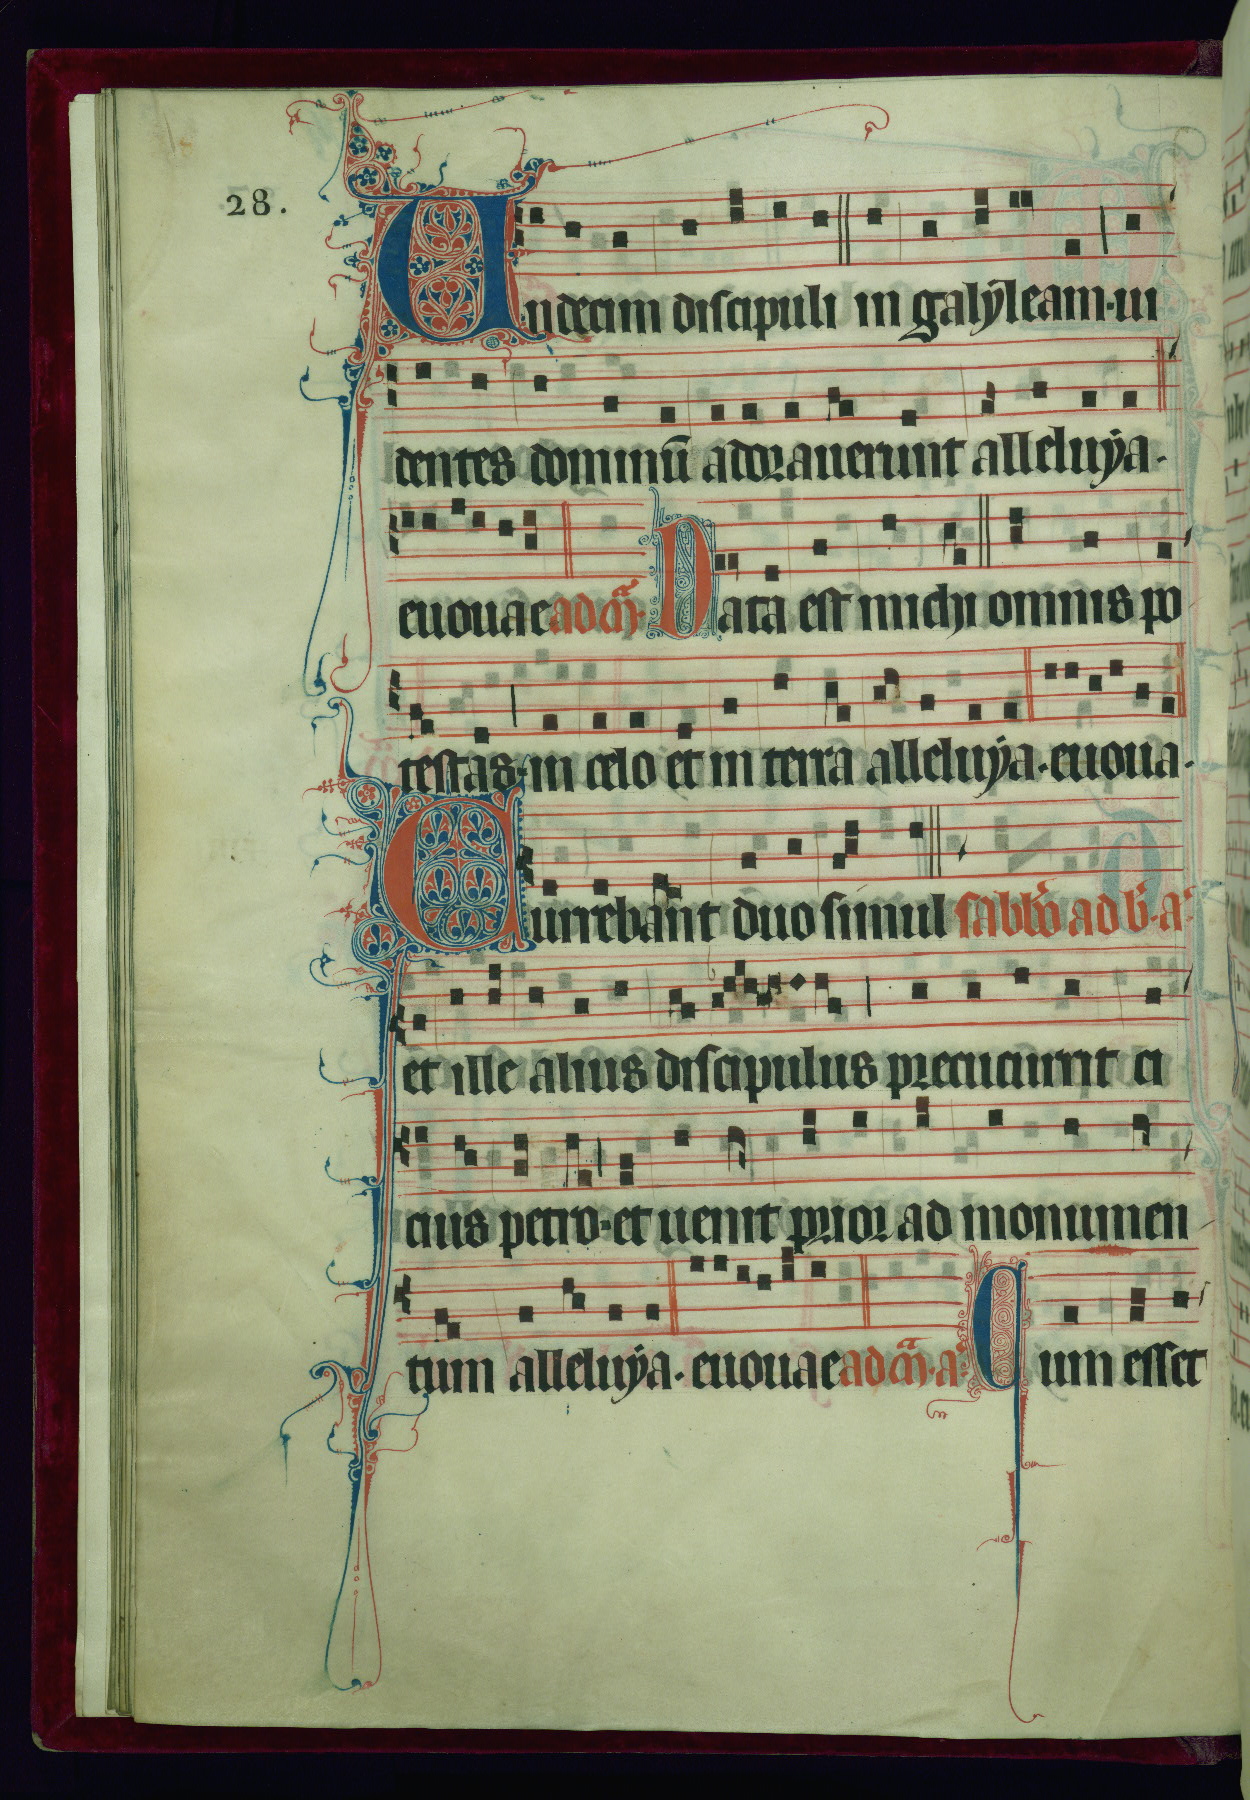 28.
Undecim discipuli in galẏleam·ui
dentes dominū adorauerunt alleluẏa·
euouae ad m̄. Data est michi omnis po
testas·in celo et in terra alleluẏa·euoua·
Currebant duo simul sabb'o ad b'·a'
et ille alius discipulus precucurrit ci
cius petro·et uenit prior ad monumen
tum alleluẏa· euouae ad m̄·a' Cum esset